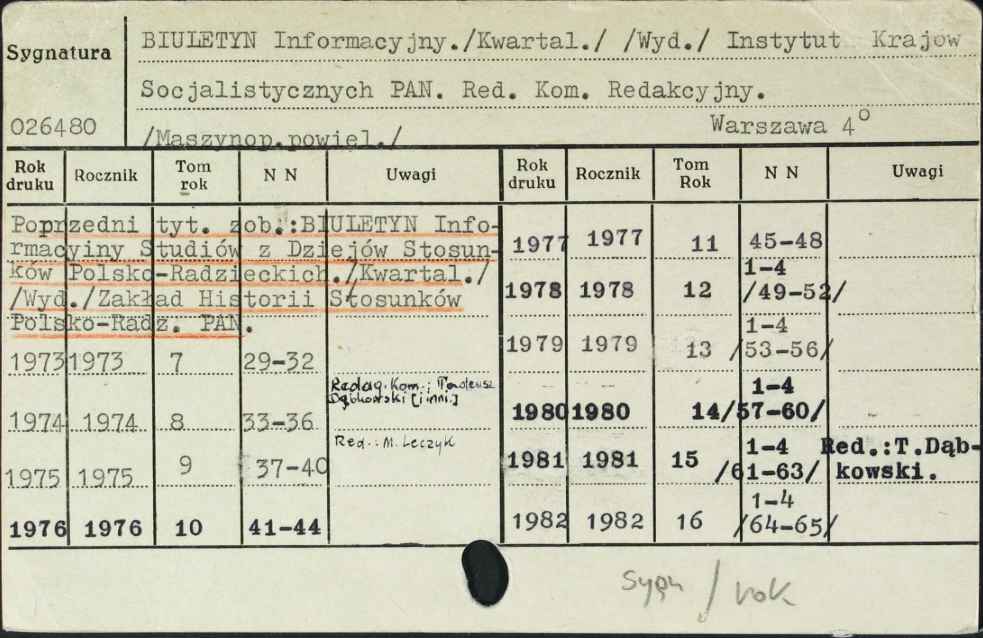 Sygnatura
026480
BIULETYN Informacyjny./Kwartal./ /Wyd./ Instytut Krajów
Socjalistycznych PAN. Red. Kom. Redakcyjny.
Warszawa 4°
/Maszynop.powiel./
Rok druku Rocznik Tom rok N N Uwagi
Poprzedni tyt. zob.:BIULETYN Info-
rmacyiny Studiów z Dziejów Stosun-
ków Polsko-Radzieckich./Kwartal./
/Wyd./Zakład Historii Stosunków
Polsko-Radz. PAN.
1973 1973 7 29-32
Redag. Kom.; Tadeusz
Dąbkowski [i inni.]
1974 1974 8 33-36
Red.: M. Leczyk
1975 1975 9 37-40
1976 1976 10 41-44
Rok druku Rocznik Tom Rok N N Uwagi
1977 1977 11 45-48
1978 1978 12 1-4 /49-52/
1979 1979 13 1-4 /53-56/
1980 1980 14 1-4 /57-60/
1981 1981 15 1-4 /61-63/ Red.:T.Dąb-
kowski.
1982 1982 16 1-4 /64-65/
sygn / rok